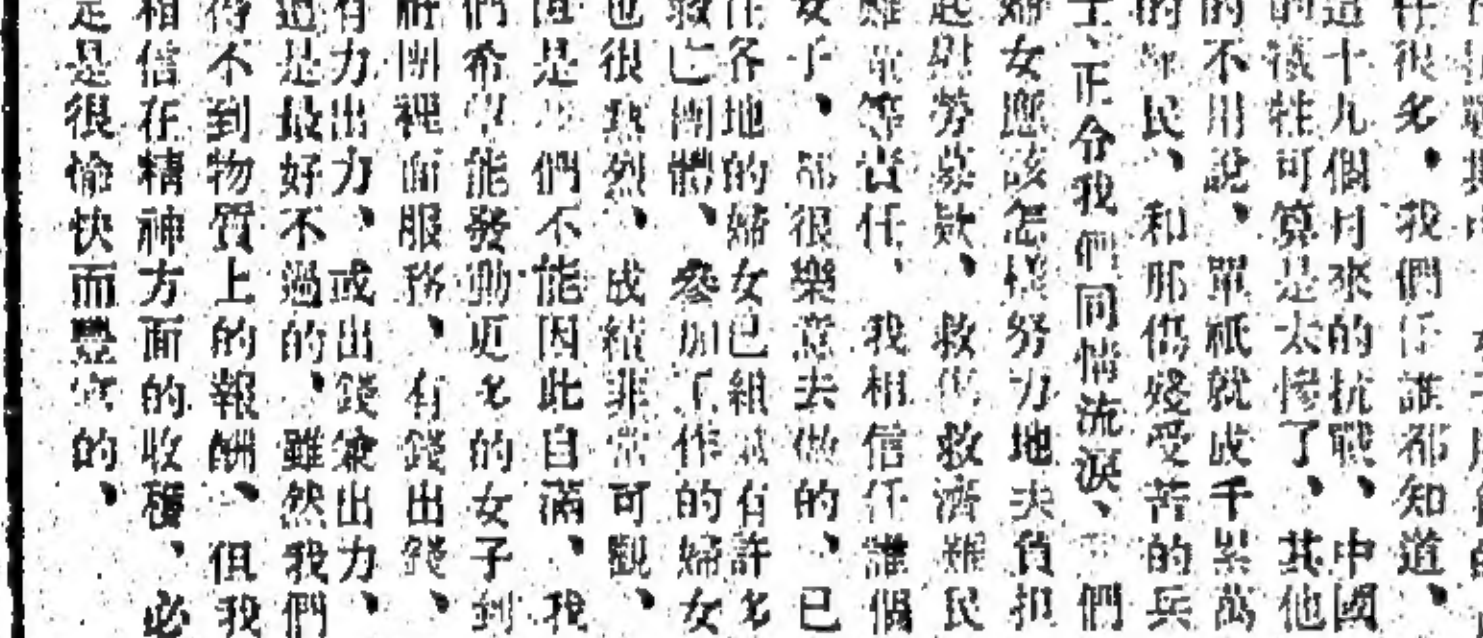 任很多，我們任誰都知道、
這十九個月來的抗戰、中國
的犧牲可算是太慘了、其他
的不用說、單祇就成千累萬
的 民、和那傷殘受苦的兵
士、正令我們同情流淚、 們
婦女應該怎樣努力地去負担
起慰勞募款、救傷救濟難民
難童等責任、我相信任誰個
女子、都很樂意去做的、已
在各地的婦女已組成有許多
救亡團體、參加工作的婦女
也很熱烈、成績非常可觀、
但是 們不能因此自滿、我
們希望能發動更多的女子到
裡面服務、有錢出錢、
有力出力、或出錢兼出力、
是最好不過的、雖然我們
得不到物質上的報酬、但我
相信在精神方面的收穫、必
定是很愉快而豐富的、